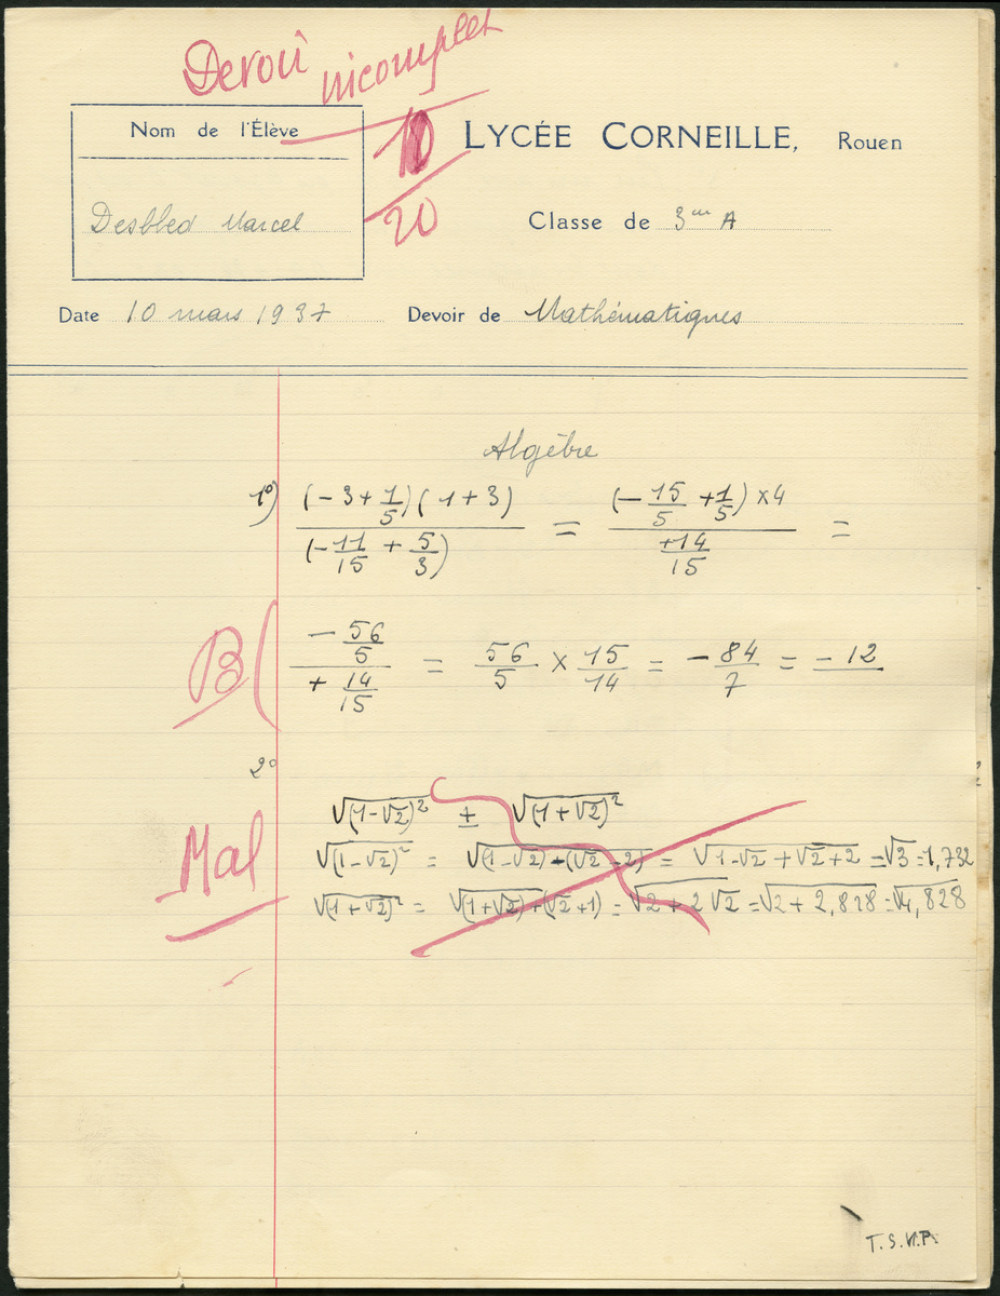 Devoir incomplet
Nom de l'Élève
10
20
LYCÉE CORNEILLE, Rouen
Desbled Marcel
Classe de 3me A
Date 10 mars 1937 Devoir de Mathématiques
Algèbre
1º) (-3+1/5)(1+3) / (-11/15 + 5/3) = (-15/5 +1/5)×4 / +14/15 =
B( -56/5 / +14/15 = 56/5 × 15/14 = -84/7 = -12
2º
√(1-√2)² ± √(1+√2)²
Mal
√(1-√2)² = √(1-√2)-(√2-2) = √1-√2+√2+2 = √3 = 1,732
√(1+√2)² = √(1+√2)+(√2+1) = √2+2√2 = √2+2,828 = √4,828
T.S.V.P.